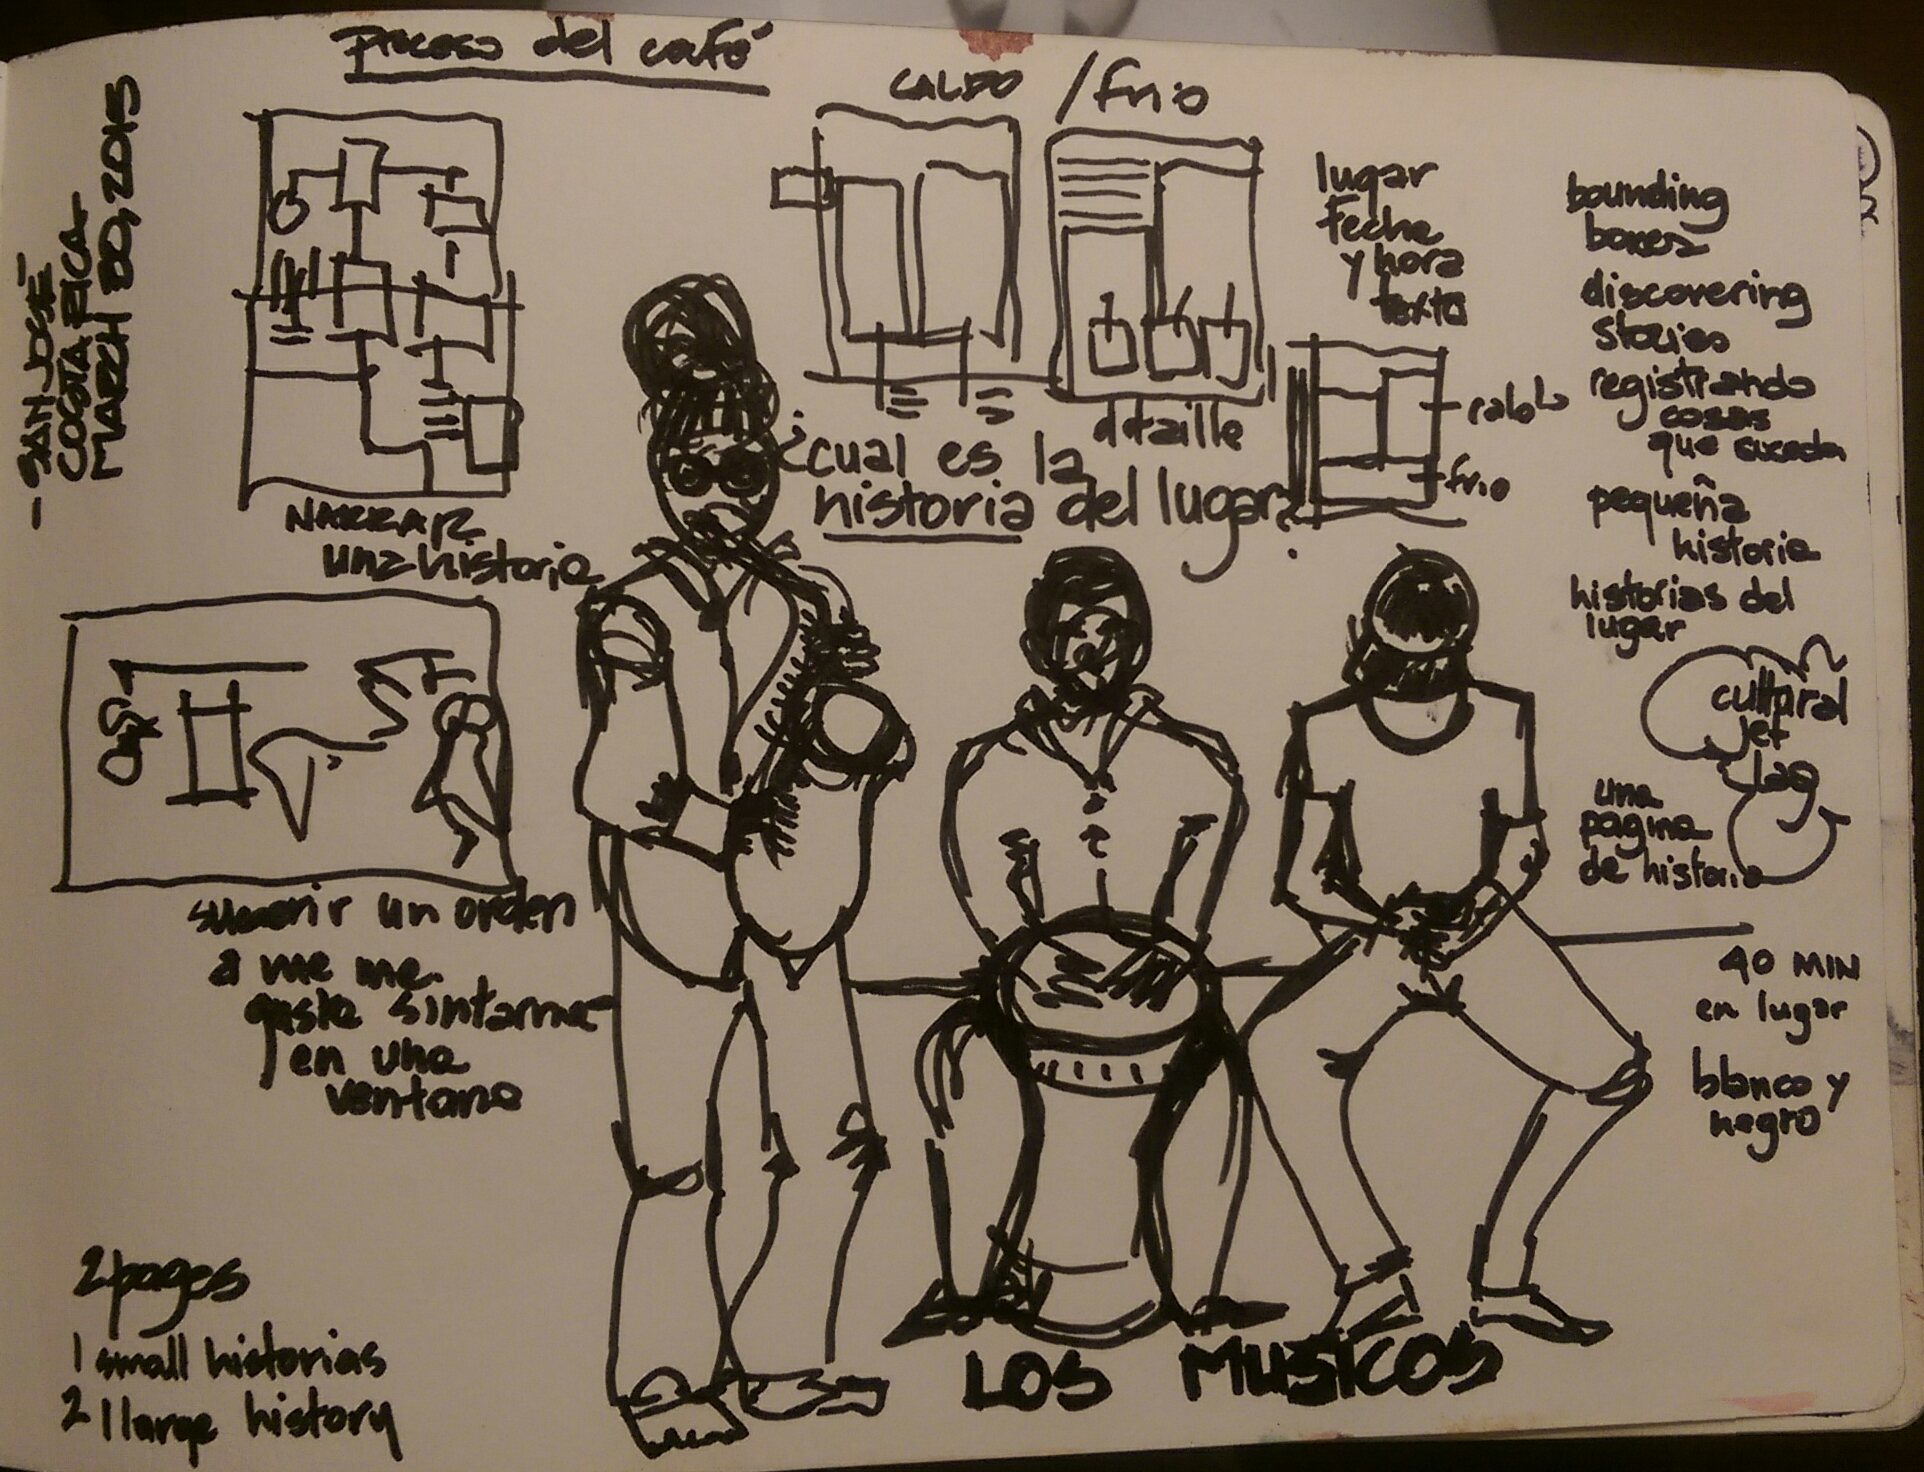 proceso del café
- SAN JOSÉ
COSTA RICA -
MARCH 30, 2015
CALDO / frio
lugar
fecha
y hora
texto
bounding
boxes
discovering
stories
registrando
cosas
que suceden
pequeña
historia
historias del
lugar
cultural
jet
lag
una
pagina
de historia
40 MIN
en lugar
blanco y
negro
frio
dtaille
¿cual es la
historia del lugar?
NARRAR
una historia
sugerir un orden
a me me
guste sintarme
en una
ventana
2 pages
1 small historias
2 1 large history
LOS MUSICOS